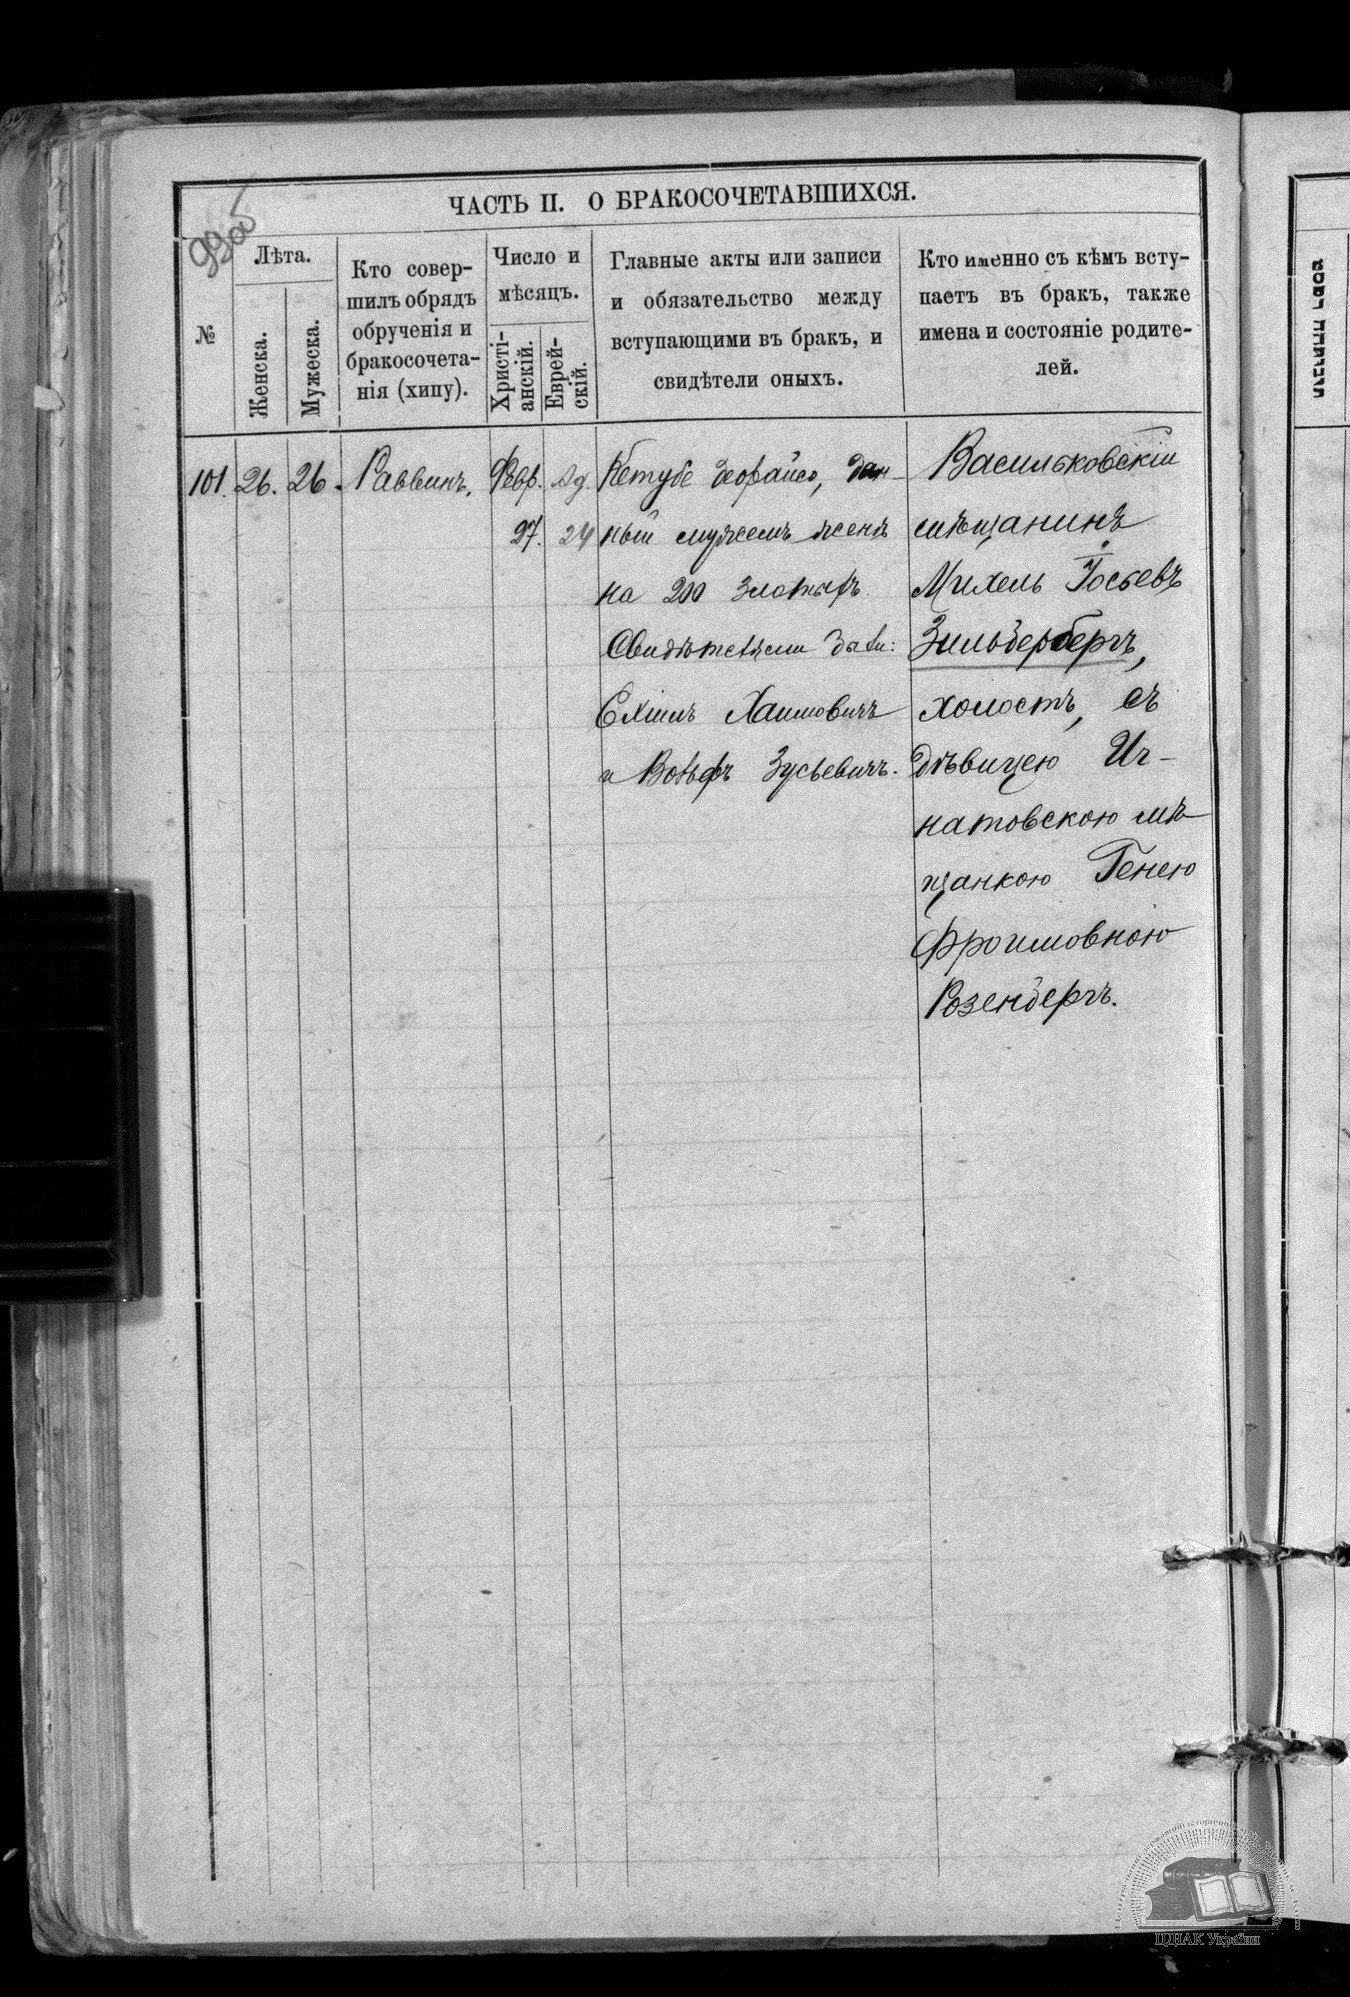 99об
ЧАСТЬ II. О БРАКОСОЧЕТАВШИХСЯ.
№
Лѣта.
Женска.
Мужеска.
Кто совер-
шилъ обрядъ
обрученія и
бракосочета-
нія (хипу).
Число и
мѣсяцъ.
Христі-
анскій.
Еврей-
скій.
Главные акты или записи
и обязательство между
вступающими въ бракъ, и
свидѣтели оныхъ.
Кто именно съ кѣмъ всту-
паетъ въ бракъ, также
имена и состояніе родите-
лей.
101. 26. 26. Раввинъ. Февр. Ад.
27. 24
Кетубе деорайсо, дан-
ный мужемъ женѣ
на 200 злотыхъ.
Свидѣтелями были:
Ехіилъ Хаимовичъ
и Вольфъ Зусьевичъ.
Васильковскій
мѣщанинъ
Михель Іосьевъ
Зильбербергъ,
холостъ, съ
дѣвицею Иг-
натовскою мѣ-
щанкою Генею
Фроимовною
Розенбергъ.
ЦДІАК України